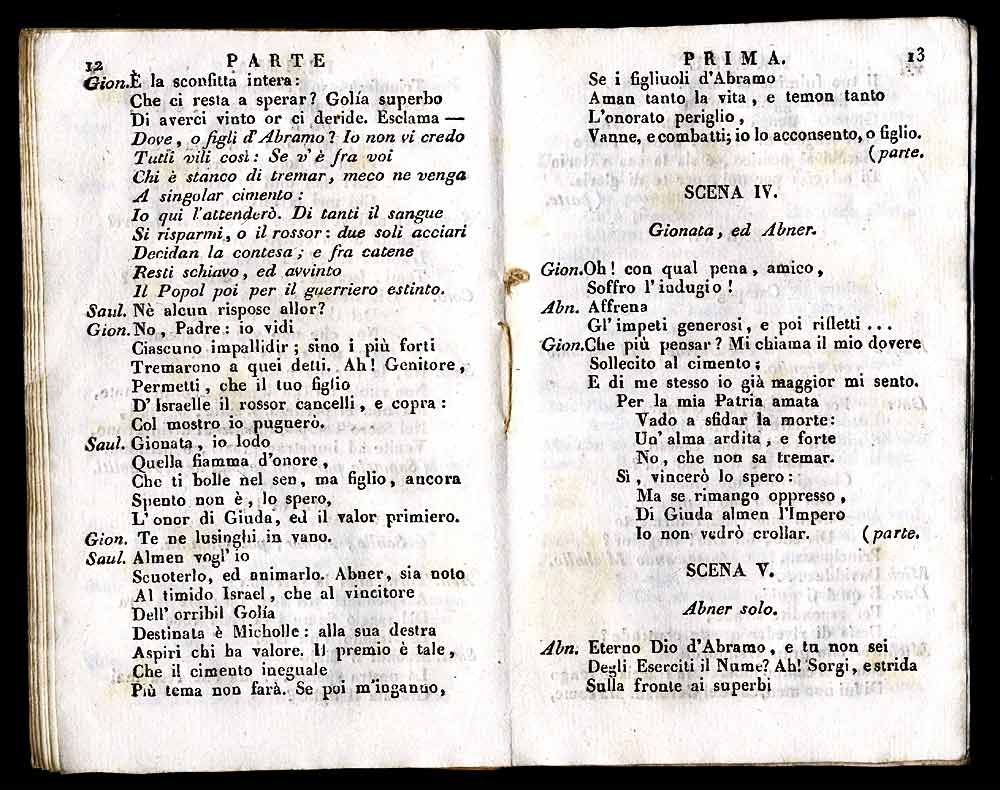 12 PARTE
Gion. È la sconfitta intera:
Che ci resta a sperar? Golía superbo
Di averci vinto or ci deride. Esclama —
Dove, o figli d'Abramo? Io non vi credo
Tutti vili così: Se v'è fra voi
Chi è stanco di tremar, meco ne venga
A singolar cimento:
Io qui l'attenderò. Di tanti il sangue
Si risparmi, o il rossor: due soli acciari
Decidan la contesa; e fra catene
Resti schiavo, ed avvinto
Il Popol poi per il guerriero estinto.
Saul. Nè alcun rispose allor?
Gion. No, Padre: io vidi
Ciascuno impallidir; sino i più forti
Tremarono a quei detti. Ah! Genitore,
Permetti, che il tuo figlio
D'Israelle il rossor cancelli, e copra:
Col mostro io pugnerò.
Saul. Gionata, io lodo
Quella fiamma d'onore,
Che ti bolle nel sen, ma figlio, ancora
Spento non è, lo spero,
L'onor di Giuda, ed il valor primiero.
Gion. Te ne lusinghi in vano.
Saul. Almen vogl'io
Scuoterlo, ed animarlo. Abner, sia noto
Al timido Israel, che al vincitore
Dell'orribil Golía
Destinata è Micholle: alla sua destra
Aspiri chi ha valore. Il premio è tale,
Che il cimento ineguale
Più tema non farà. Se poi m'inganno,
PRIMA. 13
Se i figliuoli d'Abramo
Aman tanto la vita, e temon tanto
L'onorato periglio,
Vanne, e combatti; io lo acconsento, o figlio.
(parte.
SCENA IV.
Gionata, ed Abner.
Gion. Oh! con qual pena, amico,
Soffro l'indugio!
Abn. Affrena
Gl'impeti generosi, e poi rifletti ...
Gion. Che più pensar? Mi chiama il mio dovere
Sollecito al cimento;
E di me stesso io già maggior mi sento.
Per la mia Patria amata
Vado a sfidar la morte:
Un'alma ardita, e forte
No, che non sa tremar.
Sì, vincerò lo spero:
Ma se rimango oppresso,
Di Giuda almen l'Impero
Io non vedrò crollar. (parte.
SCENA V.
Abner solo.
Abn. Eterno Dio d'Abramo, e tu non sei
Degli Eserciti il Nume? Ah! Sorgi, e strida
Sulla fronte ai superbi